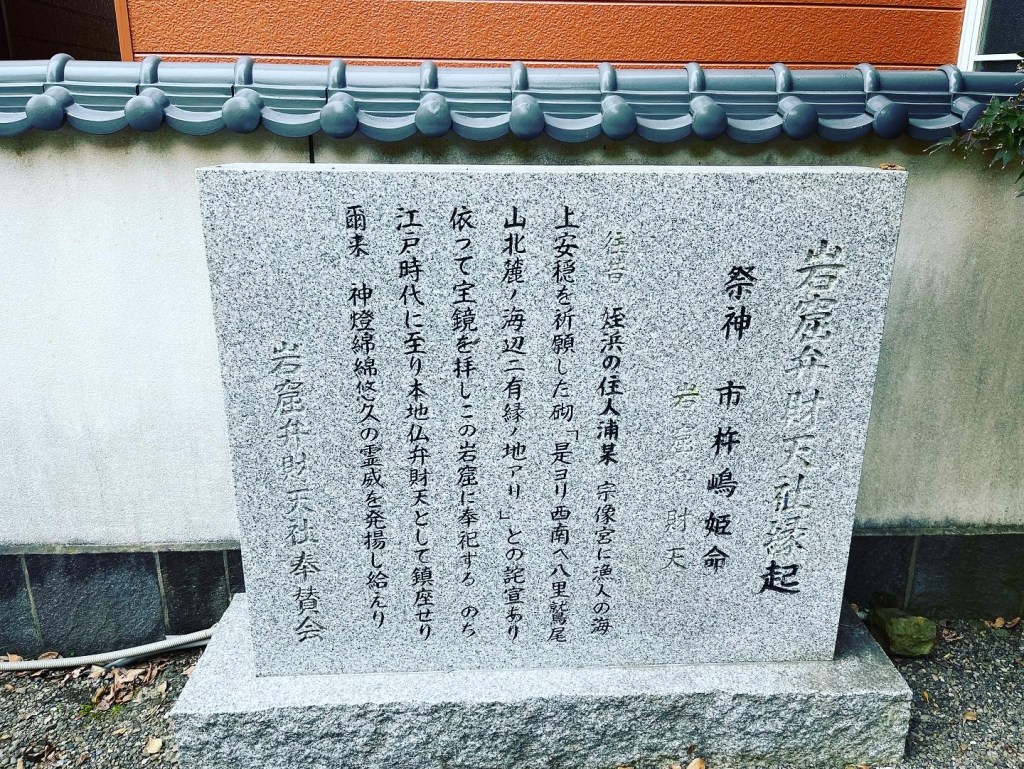 岩窟弁財天社縁起
祭神 市杵嶋姫命
岩窟弁財天
往昔 姪浜の住人浦某 宗像宮に漁人の海
上安穏を祈願した砌「是ヨリ西南へ八里鷲尾
山北麓ノ海辺ニ有縁ノ地アリ」との詫宣あり
依つて宝鏡を拝しこの岩窟に奉祀する のち
江戸時代に至り本地仏弁財天として鎮座せり
爾来 神燈綿綿悠久の霊威を発揚し給えり
岩窟弁財天社奉賛会